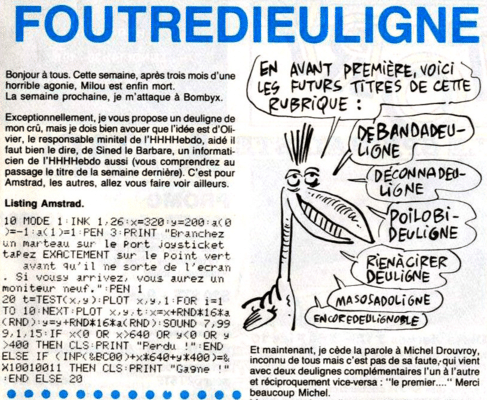 FOUTREDIEULIGNE
Bonjour à tous. Cette semaine, après trois mois d'une
horrible agonie, Milou est enfin mort.
La semaine prochaine, je m'attaque à Bombyx.
Exceptionnellement, je vous propose un deuligne de
mon crû, mais je dois bien avouer que l'idée est d'Oli-
vier, le responsable minitel de l'HHHHebdo, aidé il
faut bien le dire, de Sined le Barbare, un informati-
cien de l'HHHHebdo aussi (vous comprendrez au
passage le titre de la semaine dernière). C'est pour
Amstrad, les autres, allez vous faire voir ailleurs.
Listing Amstrad.
10 MODE 1:INK 1,26:x=320:y=200:a(0
)=-1:a(1)=1:PEN 3:PRINT "Branchez
un marteau sur le Port Joysticket
taPez EXACTEMENT sur le Point vert
avant qu'il ne sorte de l'ecran
. Si vousy arrivez, vous aurez un
moniteur neuf.":PEN 1
20 t=TEST(x,y):PLOT x,y,1:FOR i=1
TO 10:NEXT:PLOT x,y,t:x=x+RND*16*a
(RND):y=y+RND*16*a(RND):SOUND 7,99
9,1,15:IF x<0 OR x>640 OR y<0 OR y
>400 THEN CLS:PRINT "Perdu !":END
ELSE IF (INP(&BC00)+x*640+y*400)=&
X10010011 THEN CLS:PRINT"Ga9ne !"
:END ELSE 20
EN AVANT PREMIÈRE, VOICI
LES FUTURS TITRES DE CETTE
RUBRIQUE :
DÉBANDADEU-
LIGNE
DÉCONNADEU-
LIGNE
POILOBI-
DEULIGNE
RIENÀCIRER
DEULIGNE
MASOSADOLIGNE
ENCOREDEDLIGNOBLE
Et maintenant, je cède la parole à Michel Drouvroy,
inconnu de tous mais c'est pas de sa faute, qui vient
avec deux deulignes complémentaires l'un à l'autre
et réciproquement vice-versa : "le premier...." Merci
beaucoup Michel.